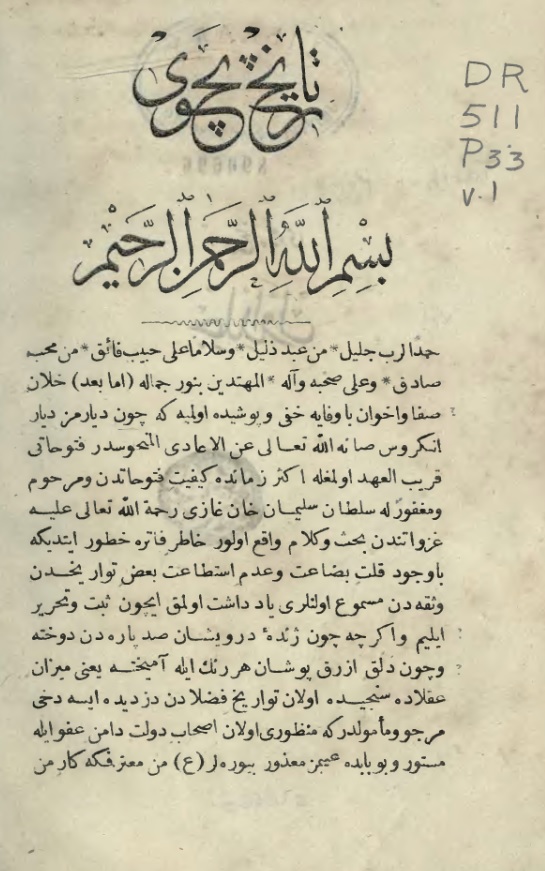 تاریخ پچوی
DR
511
P33
v.1
بِسْمِ اللّٰهِ الرَّحْمٰنِ الرَّحِیْمِ
حمدا لرب جلیل * من عبد ذلیل * وسلاما علی حبیب فائق * من محب
صادق * وعلی صحبه وآله * المهتدین بنور جماله (اما بعد) خلان
صفا واخوان با وفایه خفی وپوشیده اولمیه که چون دیارمز دیار
انکروس صانه الله تعالی عن الاعادی المنحوسدر فتوحاتی
قریب العهد اولمغله اکثر زمانده کیفیت فتوحاتدن ومرحوم
ومغفور له سلطان سلیمان خان غازی رحمة الله تعالی علیه
غزواتندن بحث وکلام واقع اولور خاطر فاتره خطور ایتدیکه
باوجود قلت بضاعت وعدم استطاعت بعض تواریخدن
وثقه دن مسموع اولنلری یاد داشت اولمق ایچون ثبت وتحریر
ایلیم واکرچه چون ژندهٔ درویشان صد پاره دن دوخته
وچون دلق ازرق پوشان هر رنك ایله آمیخته یعنی میزان
عقلاده سنجیده اولان تواریخ فضلادن دزدیده ایسه دخی
مرجو ومأمولدرکه منظوری اولان اصحاب دولت دامن عفو ایله
مستور وبو بابده عیبمز معذور بیوره لر (ع) من معترفکه کار من